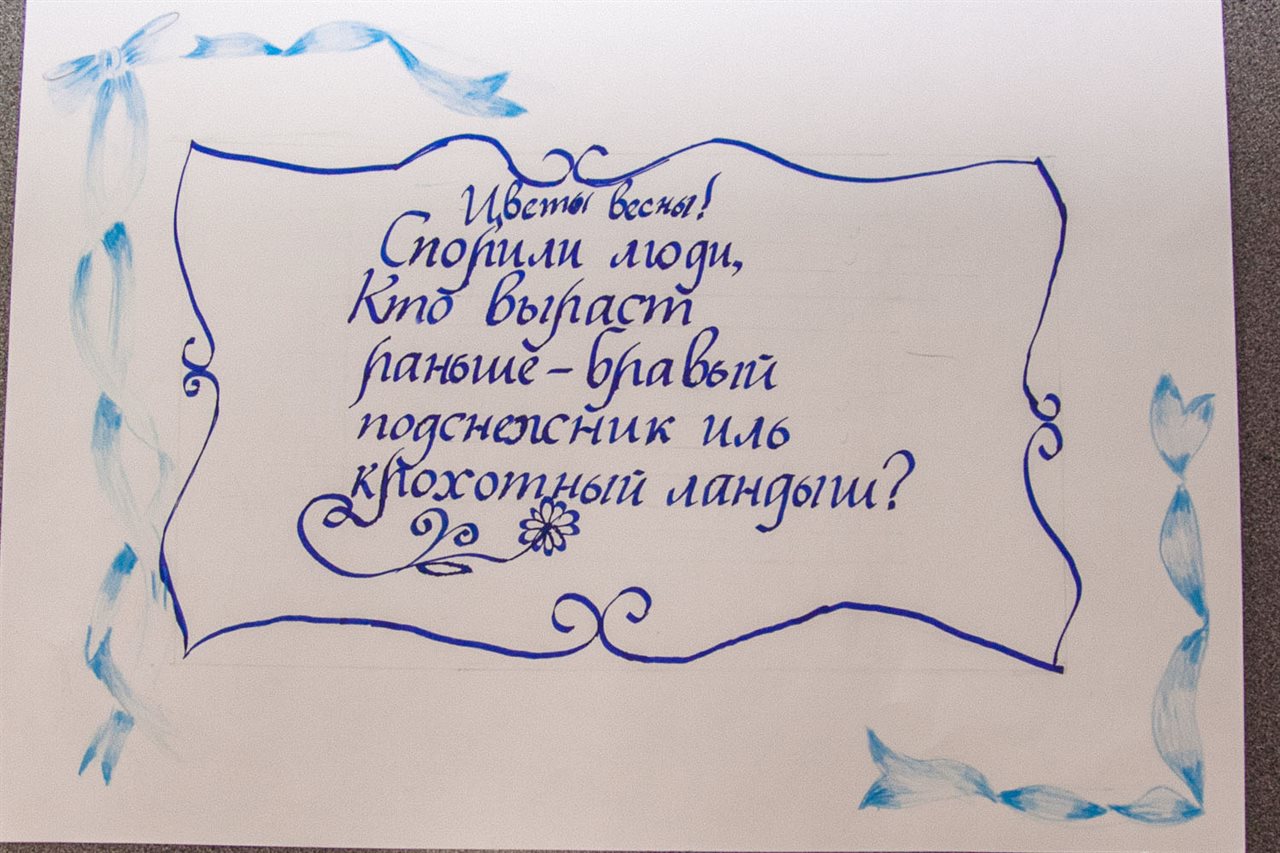 Цветы весны!
Спорили люди,
Кто выраст
раньше – бравый
подснежник иль
крохотный ландыш?